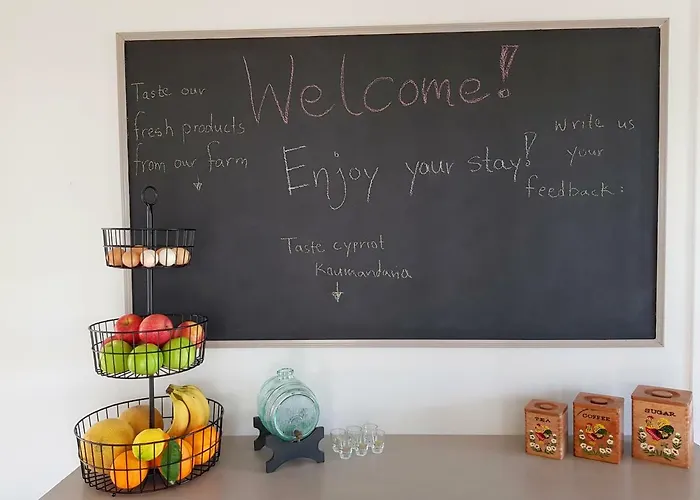 Welcome!
Taste our
fresh products
from our farm
Enjoy your stay!
Write us
your
feedback:
Taste cypriot
Koumandaria
TEA
COFFEE
SUGAR